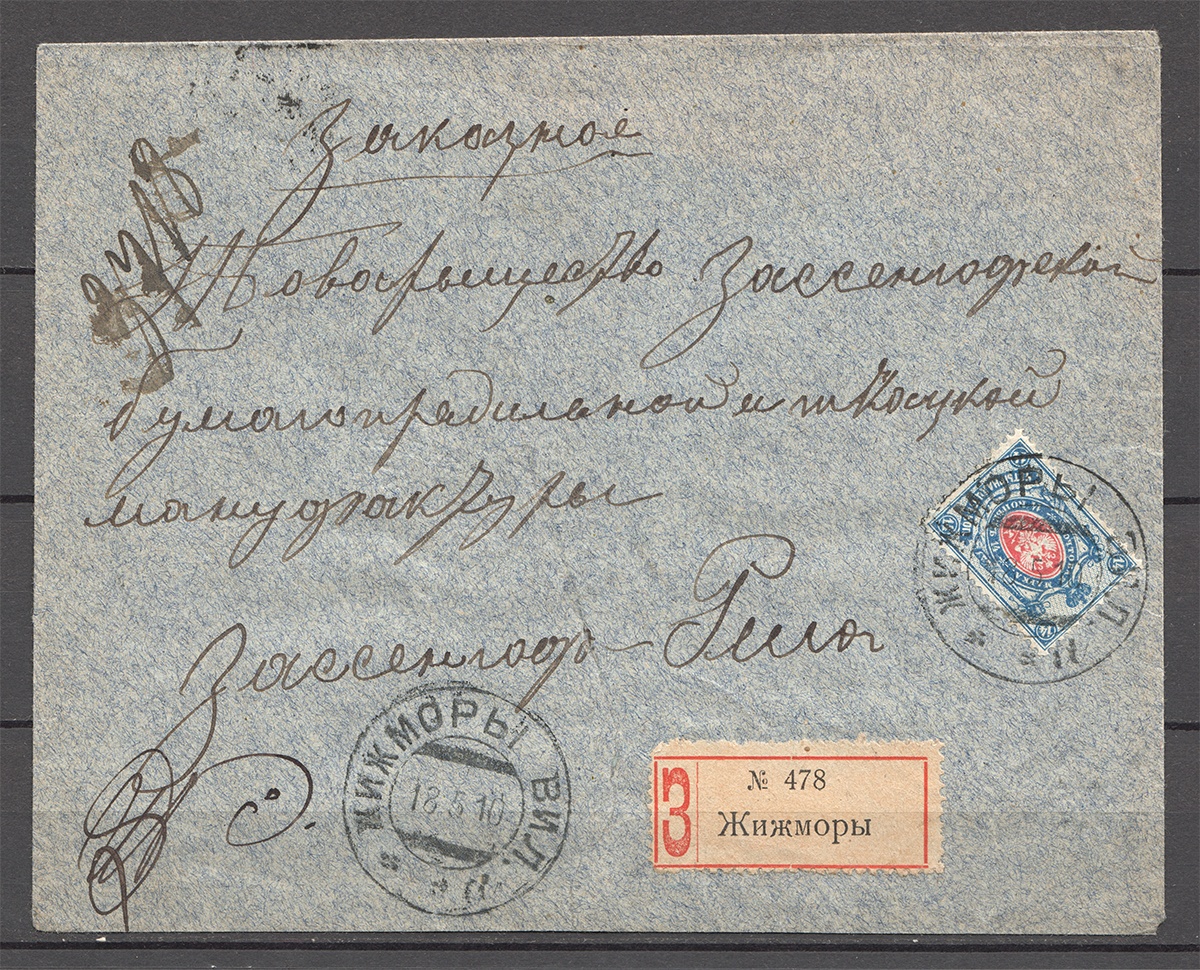 Заказное
Товарыщество Зассенгофской
бумагопрадильной и ткацкой
мануфактуры
Зассенгоф - Рига
ЖИЖМОРЫ ВИЛ.
ЖИЖМОРЫ ВИЛ.
18.5.10
З
№ 478
Жижморы